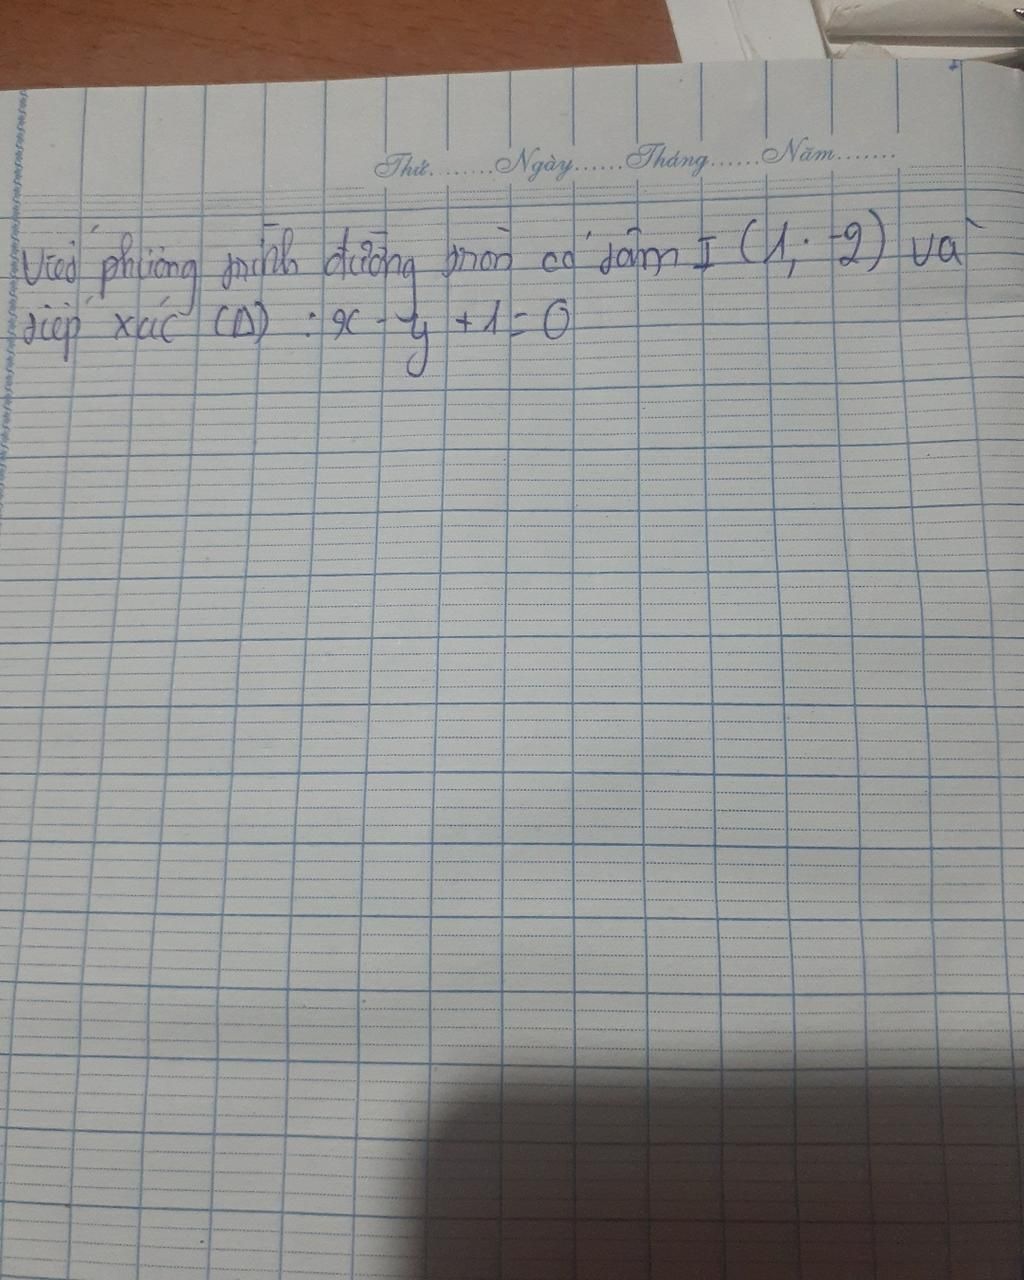 Thứ........Ngày......Tháng......Năm.......
Viết phương trình đường tròn có tâm I (1; -2) và
tiếp xúc (Δ) : x - y + 1 = 0